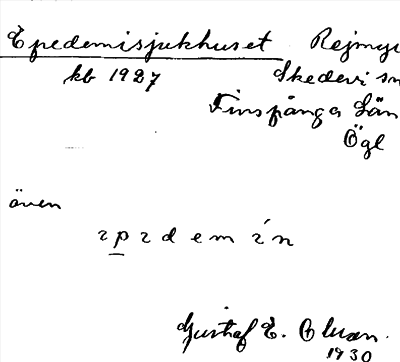 Epedemisjukhuset Rejmyr
kb 1927 Skedevi sn
Finspånga Län
Ögl
även
Gustaf E.
1930